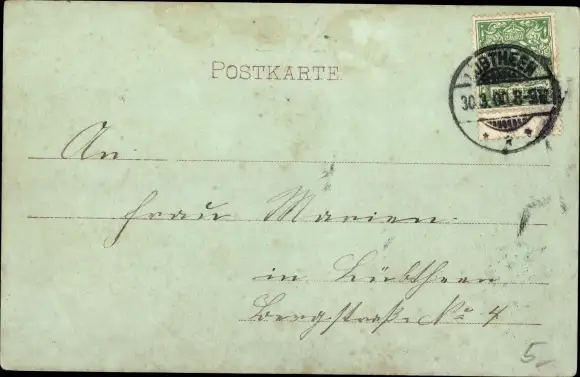 POSTKARTE
LÜBTHEEN
30.3.00.8-9V.
An
Frau Marien
in Lübtheen
Bergstraße No 4
5-